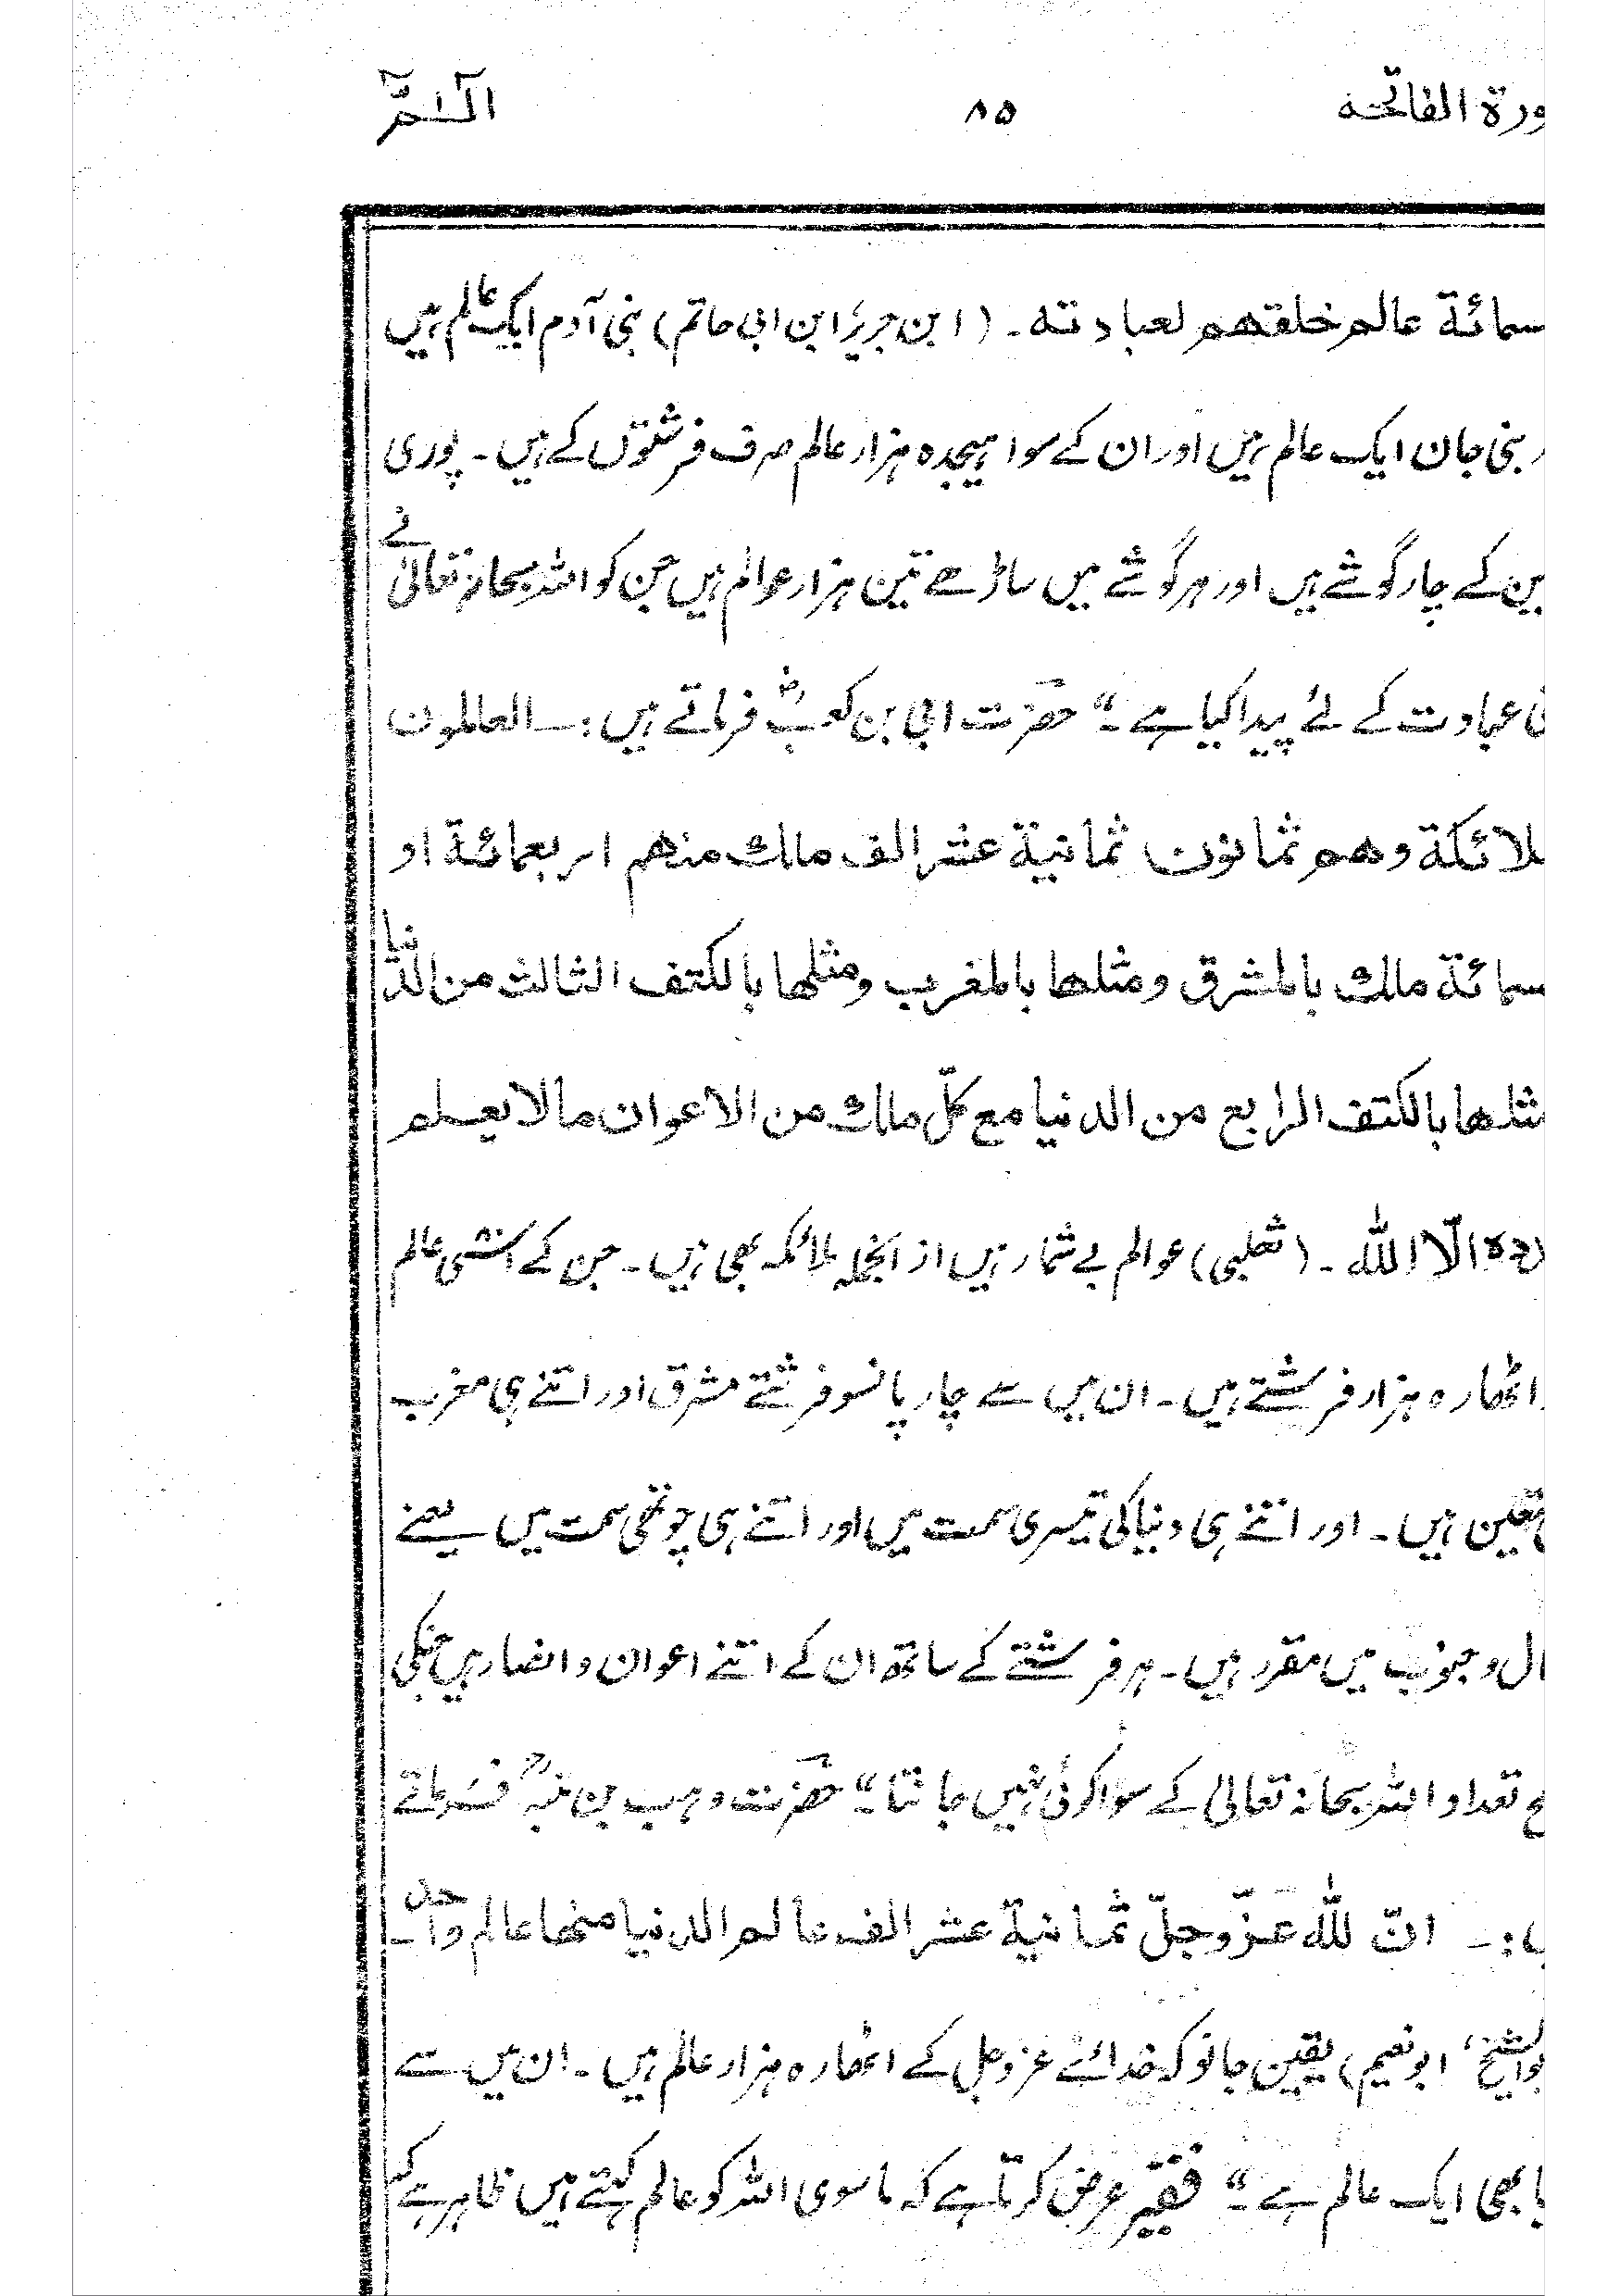 ورة الفاتحه ۸۵ الٓـمّٓ
سمائة عالم خلقهم لعبادته۔ (ابن جریر، ابن ابی حاتم) بنی آدم ایک عالم ہیں
ر بنی جان ایک عالم ہیں اور ان کے سوا ہیجدہ ہزار عالم صرف فرشتوں کے ہیں۔ پوری
ین کے چار گوشے ہیں اور ہر گوشے میں ساڑھے تین ہزار عوالم ہیں جن کو اللہ سبحانہ تعالیٰ نے
نی عبادت کے لئے پیدا کیا ہے۔“ حضرت ابی بن کعبؓ فرماتے ہیں:۔ العالمون
ملائكة وهم ثمانون ثمانية عشر الف ملك منهم اربعمائة او
سمائة ملك بالمشرق ومثلها بالمغرب ومثلها بالكتف الثالث من الدنيا
مثلها بالكتف الرابع من الدنيا مع كلّ ملك من الاعوان مالا يعلم
دده الّا اللّٰه۔ (ثعلبی) عوالم بے شمار ہیں از انجملہ ملائکہ بھی ہیں۔ جن کے اسّی عالم
اٹھارہ ہزار فرشتے ہیں۔ ان میں سے چار پانسو فرشتے مشرق اور اتنے ہی مغرب
متعین ہیں۔ اور اتنے ہی دنیا کی تیسری سمت میں اور اتنے ہی چوتھی سمت میں یعنے
ال و جنوب میں مقرر ہیں۔ ہر فرشتے کے ساتھ ان کے اتنے اعوان و انصار ہیں جنکی
ح تعداد اللہ سبحانہ تعالیٰ کے سوا کوئی نہیں جانتا۔“ حضرت وہب بن منبہؒ فرماتے
ں:۔ انّ للّٰه عزّوجلّ ثمانية عشر الف عالم الدنيا منها عالم واحد
بوالشیخ، ابونعیم) یقین جانو کہ خدائے عزوجل کے اٹھارہ ہزار عالم ہیں۔ ان میں سے
یا بھی ایک عالم ہے۔“ فقیر عرض کرتا ہے کہ ماسوی اللہ کو عالم کہتے ہیں ظاہر ہے کہ